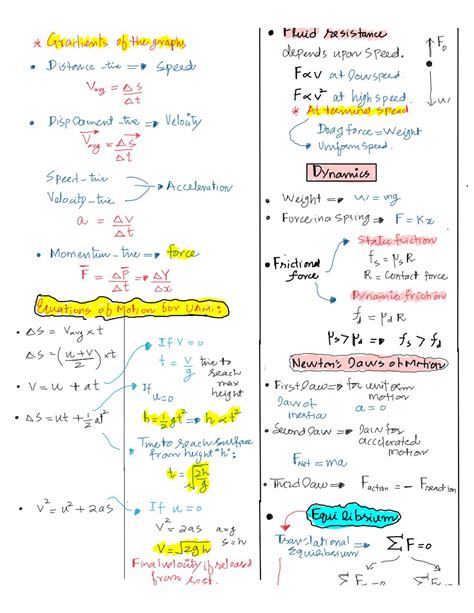 * Gradients of the graphs
• Distance -time ⇒ Speed
Vavg = Δs/Δt
• Displacement -time ⇒ Velocity
Vavg = Δs/Δt
Speed-time
Velocity-time
Acceleration
a = Δv/Δt
• Momentum-time ⇒ force
F = ΔP/Δt ⇒ ΔY/Δx
Equations of Motion for UAM:
• Δs = Vavg × t
Δs = (u+v/2) × t
• v = u + at
• Δs = ut + 1/2 at²
• v² = u² + 2as
If v = 0
t = v/g time to reach max height
If u=0
h = 1/2 gt² ⇒ h ∝ t²
Time to reach surface
from height "h":
t = √2h/g
If u = 0
v² = 2as a=g
s=h
v = √2gh
Final velocity if released
from rest.
• Fluid resistance
depends upon speed.
F∝v at low speed.
F∝v² at high speed.
* At terminal speed
Drag force = Weight
Uniform speed.
Dynamics
• Weight ⇒ w = mg
• Force in a Spring ⇒ F = Kx
• Frictional
force
Static friction
fs = μs R
R = Contact force
Dynamic friction
fd = μd R
μs > μd ⇒ fs > fd
Newton's Laws of Motion
• First law ⇒ for uniform
motion
law of
inertia
a = 0
• Second law ⇒ law for
accelerated
motion
FNet = ma
• Third law ⇒ Faction = - Freaction
• Equilibrium
Translational
Equilibrium ⇒ ΣF=0